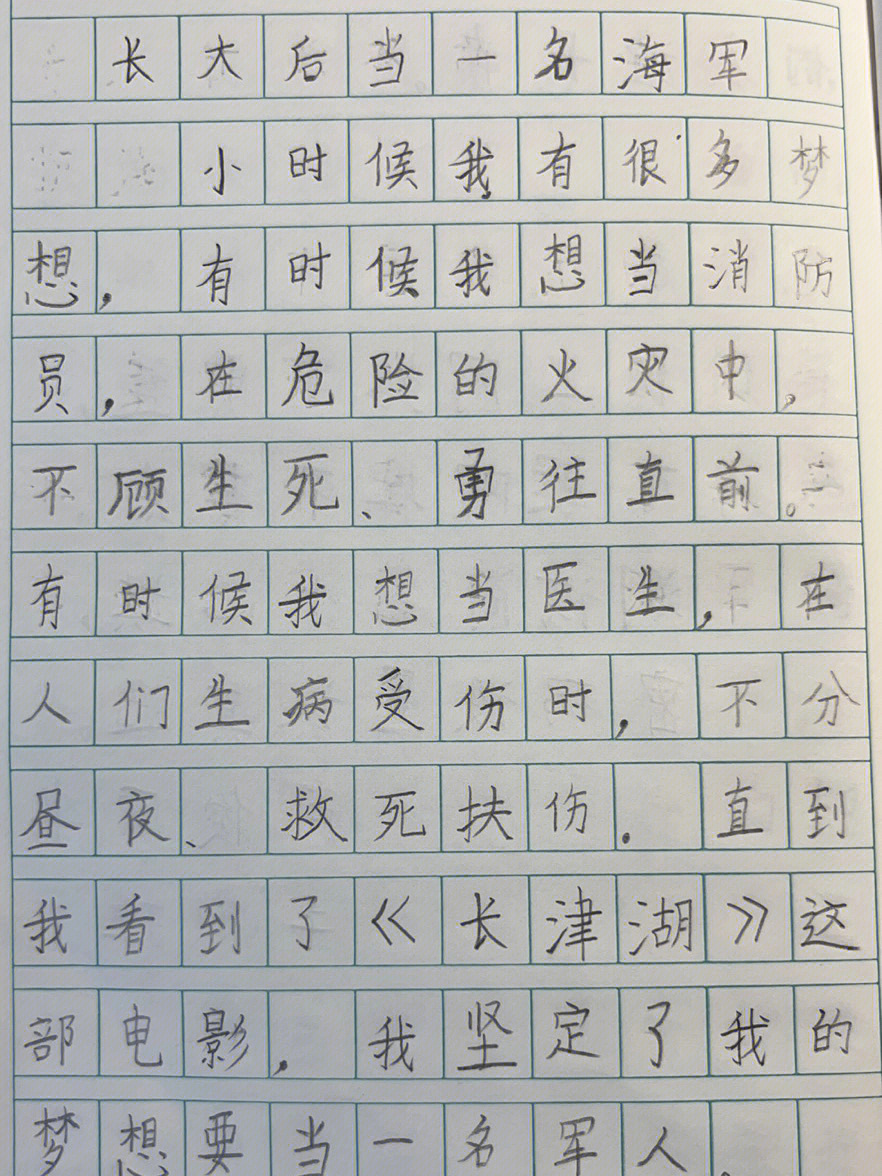 长大后当一名海军
小时候我有很多梦
想，有时候我想当消防
员，在危险的火灾中，
不顾生死、勇往直前。
有时候我想当医生，在
人们生病受伤时，不分
昼夜、救死扶伤。直到
我看到了《长津湖》这
部电影，我坚定了我的
梦想要当一名军人。